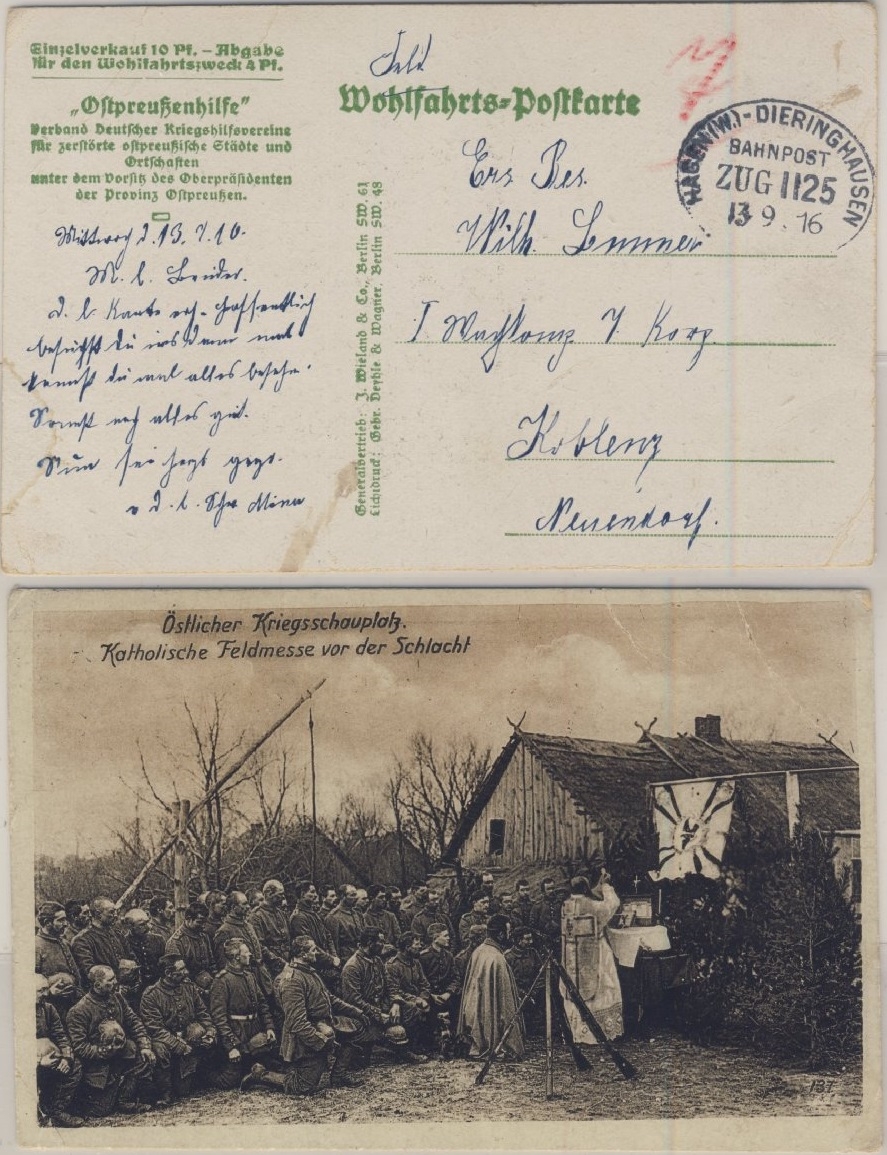 Einzelverkauf 10 Pf. – Abgabe
für den Wohlfahrtszweck 4 Pf.
„Ostpreußenhilfe”
Verband Deutscher Kriegshilfsvereine
für zerstörte ostpreußische Städte und
Ortschaften
unter dem Vorsitz des Oberpräsidenten
der Provinz Ostpreußen.
Mittwoch d. 13.
M. l. Bruder.
d. l. Karte erh. Hoffentlich
besuchst du uns dann mal
kannst du mal alles besehn.
Sonst noch alles gut.
Nun sei herzl. gegr.
v d. l. Schw Mina
Generalvertrieb: J. Wieland & Co., Berlin SW. 61
Lichtdruck: Gebr. Deyhle & Wagner, Berlin SW. 48
Feld
Wohlfahrts-Postkarte
HAGEN(W.)-DIERINGHAUSEN
BAHNPOST
ZUG 1125
13 9. 16
Ers. Res.
Wilh.
I Wachtkomp 7. Korp.
Koblenz
Neuendorf.
Östlicher Kriegsschauplatz.
Katholische Feldmesse vor der Schlacht
137